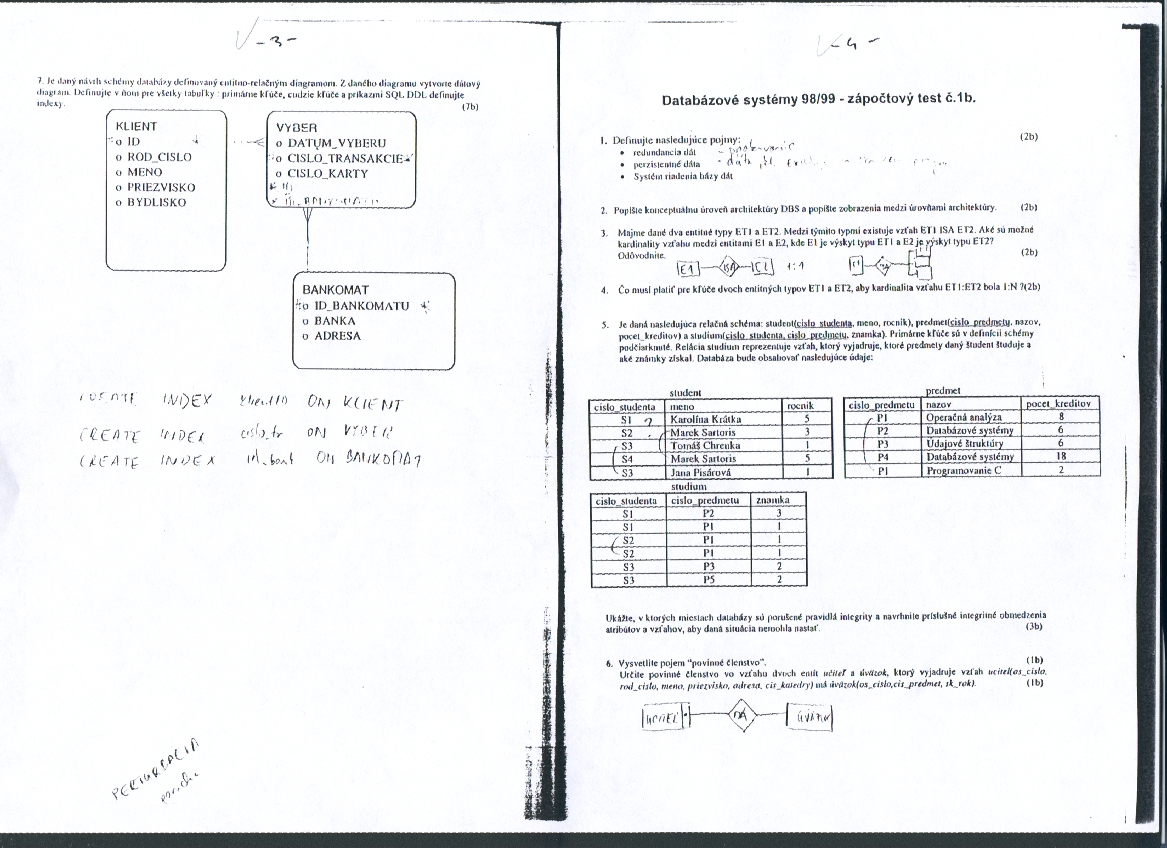 - 3 -
7. Je daný návrh schémy databázy definovaný entitno-relačným diagramom. Z daného diagramu vytvorte dátový
diagram. Definujte v ňom pre všetky tabuľky : primárne kľúče, cudzie kľúče a príkazmi SQL DDL definujte
indexy. (7b)
KLIENT
o ID
o ROD_CISLO
o MENO
o PRIEZVISKO
o BYDLISKO
VYBER
o DATUM_VYBERU
o CISLO_TRANSAKCIE
o CISLO_KARTY
BANKOMAT
o ID_BANKOMATU
o BANKA
o ADRESA
CREATE INDEX ON KLIENT
CREATE INDEX ON VYBER
CREATE INDEX ON BANKOMAT
- 4 -
Databázové systémy 98/99 - zápočtový test č.1b.
1. Definujte nasledujúce pojmy: (2b)
• redundancia dát
• perzistentné dáta
• Systém riadenia bázy dát
2. Popíšte konceptuálnu úroveň architektúry DBS a popíšte zobrazenia medzi úrovňami architektúry. (2b)
3. Majme dané dva entitné typy ET1 a ET2. Medzi týmito typmi existuje vzťah ET1 ISA ET2. Aké sú možné
kardinality vzťahu medzi entitami E1 a E2, kde E1 je výskyt typu ET1 a E2 je výskyt typu ET2?
Odôvodnite. (2b)
E1 ISA E2 1:1
4. Čo musí platiť pre kľúče dvoch entitných typov ET1 a ET2, aby kardinalita vzťahu ET1:ET2 bola 1:N ?(2b)
5. Je daná nasledujúca relačná schéma: student(cislo_studenta, meno, rocnik), predmet(cislo_predmetu, nazov,
pocet_kreditov) a studium(cislo_studenta, cislo_predmetu, znamka). Primárne kľúče sú v definícii schémy
podčiarknuté. Relácia studium reprezentuje vzťah, ktorý vyjadruje, ktoré predmety daný študent študuje a
aké známky získal. Databáza bude obsahovať nasledujúce údaje:
student
cislo_studenta meno rocnik
S1 Karolína Krátka 5
S2 Marek Sartoris 3
S3 Tomáš Chrenka 1
S4 Marek Sartoris 5
S3 Jana Pisárová 1
predmet
cislo_predmetu nazov pocet_kreditov
P1 Operačná analýza 8
P2 Databázové systémy 6
P3 Údajové štruktúry 6
P4 Databázové systémy 18
P1 Programovanie C 2
studium
cislo_studenta cislo_predmetu znamka
S1 P2 3
S1 P1 1
S2 P1 1
S2 P1 1
S3 P3 2
S3 P5 2
Ukážte, v ktorých miestach databázy sú porušené pravidlá integrity a navrhnite príslušné integritné obmedzenia
atribútov a vzťahov, aby daná situácia nemohla nastať. (3b)
6. Vysvetlite pojem "povinné členstvo". (1b)
Určite povinné členstvo vo vzťahu dvoch entít učiteľ a úväzok, ktorý vyjadruje vzťah ucitel(os_cislo,
rod_cislo, meno, priezvisko, adresa, cis_katedry) má úväzok(os_cislo,cis_predmet, sk_rok). (1b)
UČITEĽ MÁ ÚVÄZOK